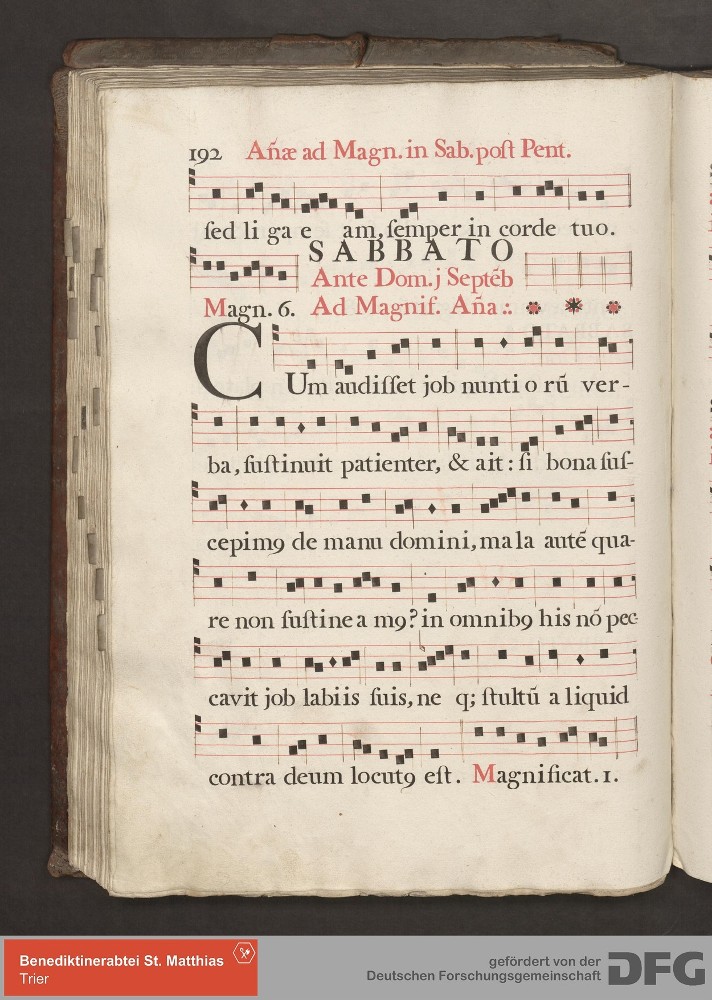 192 Añæ ad Magn. in Sab. poſt Pent.
ſed li ga e am, ſemper in corde tuo.
SABBATO
Ante Dom. j Septẽb
Magn. 6. Ad Magnif. Aña :.
CUm audiſſet job nunti o rũ ver-
ba, ſuſtinuit patienter, & ait : ſi bona ſuſ-
cepimꝯ de manu domini, ma la autẽ qua-
re non ſuſtine a mꝯ? in omnibꝯ his nõ pec-
cavit job labiis ſuis, ne q; ſtultũ a liquid
contra deum locutꝯ eſt. Magnificat. 1.
Benediktinerabtei St. Matthias
Trier
gefördert von der
Deutschen Forschungsgemeinschaft
DFG